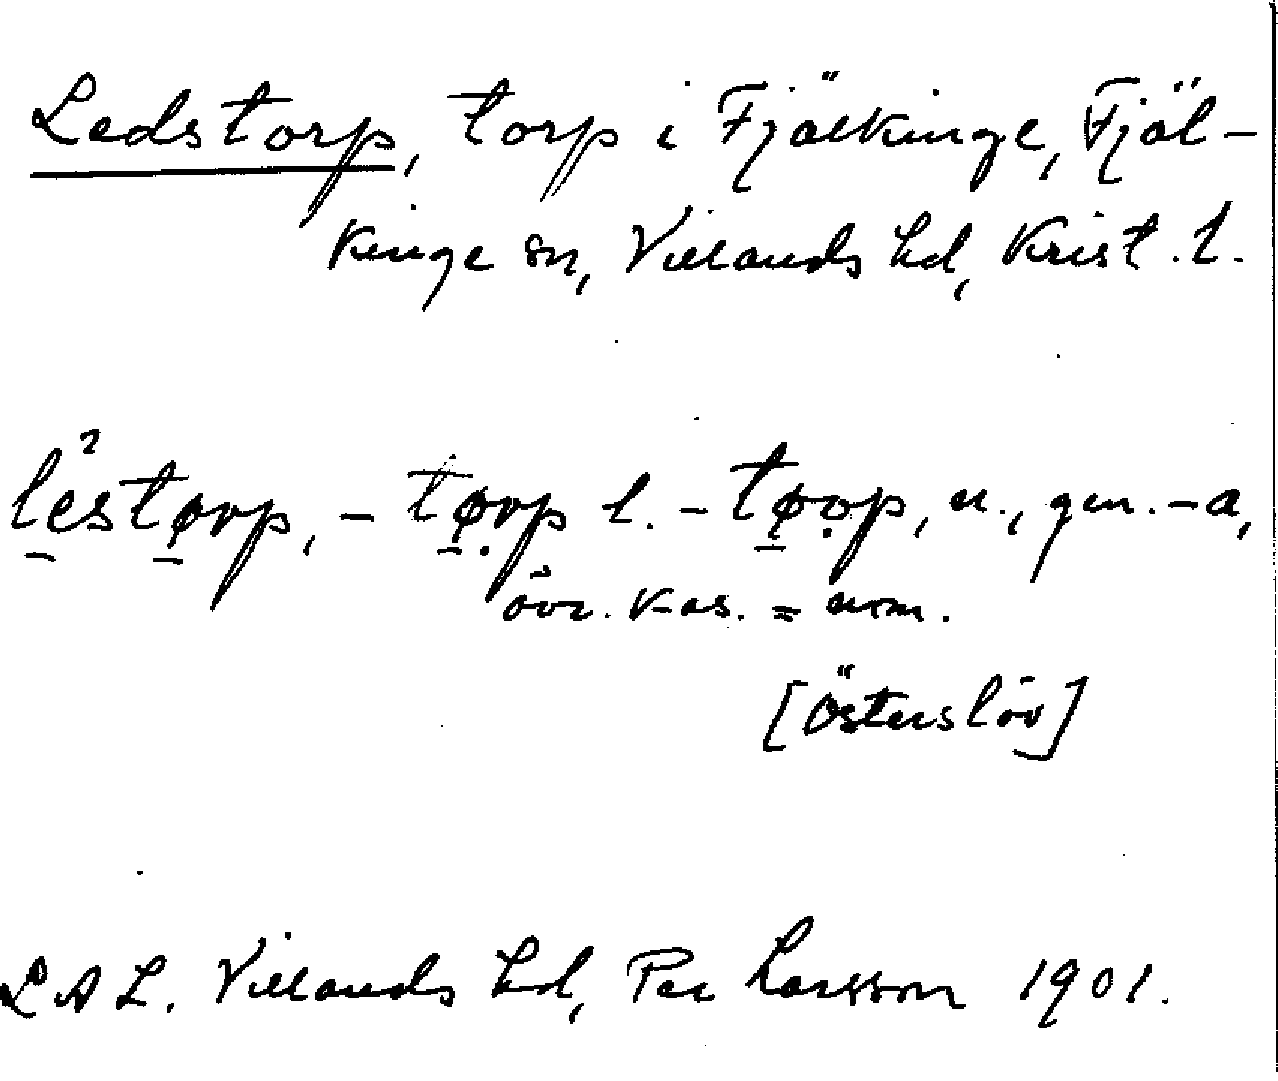 Ledstorp, torp i Fjälkinge, Fjäl-
kinge sn, Villands hd, Krist. l.
le²størp, -tørp l. -tøop, n., gen. -a,
övr. kas. = nom.
[Österslöv]
LAL. Villands hd, Per Larsson 1901.